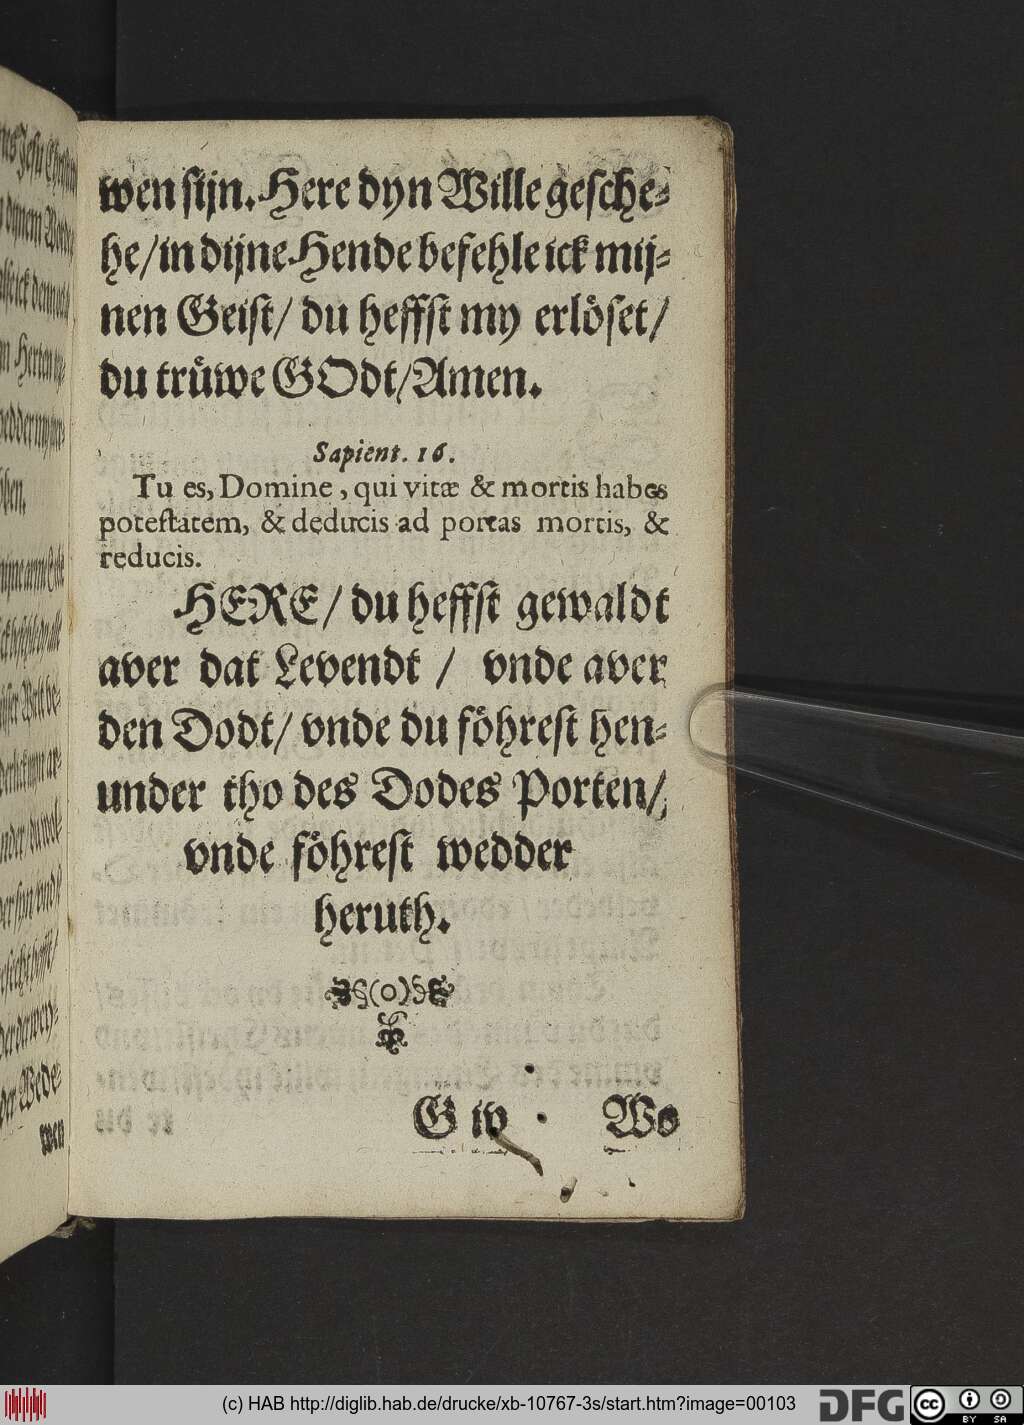 wen sijn. Here dyn Wille gesche-
he/in dijne Hende befehle ick mij-
nen Geist/ du heffst my erlöset/
du trüwe GOdt/Amen.
Sapient. 16.
Tu es, Domine, qui vitæ & mortis habes
potestatem, & deducis ad portas mortis, &
reducis.
HERE/ du heffst gewaldt
aver dat Levendt / vnde aver
den Dodt/ vnde du föhrest hen-
under tho des Dodes Porten/
vnde föhrest wedder
heruth.
(o)
G iv Wo
(c) HAB http://diglib.hab.de/drucke/xb-10767-3s/start.htm?image=00103
DFG
cc BY SA